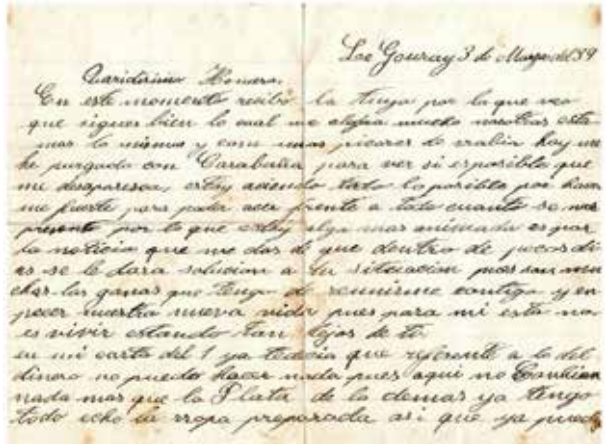 Los Gouray 3 de Mayo del 39
Queridisimo Honora.
En este momento recibo la tuya por la que veo
que sigues bien lo cual me alegra mucho nosotras esta
mos lo mismo y con unos picores de rabia hoy me
he purgado con Carabaña para ver si es posible que
me desaparezca, estoy aciendo todo lo posible por hacer
me fuerte para poder acer frente a todo cuanto se nos
presente por lo que estoy algo mas animada es por
la noticia que me das de que dentro de pocos di
as se le dara solucion a tu situacion pues son mu
chas las ganas que tengo de reunirme contigo y em
pecer nuestra nueva vida pues para mi esto no
es vivir estando tan lejos de ti.
en mi carta del 1 ya te decia que referente a lo del
dinero no puedo hacer nada pues aqui no cambian
nada mas que la Plata de lo demas ya tengo
todo echo la ropa preparada asi que ya puedo